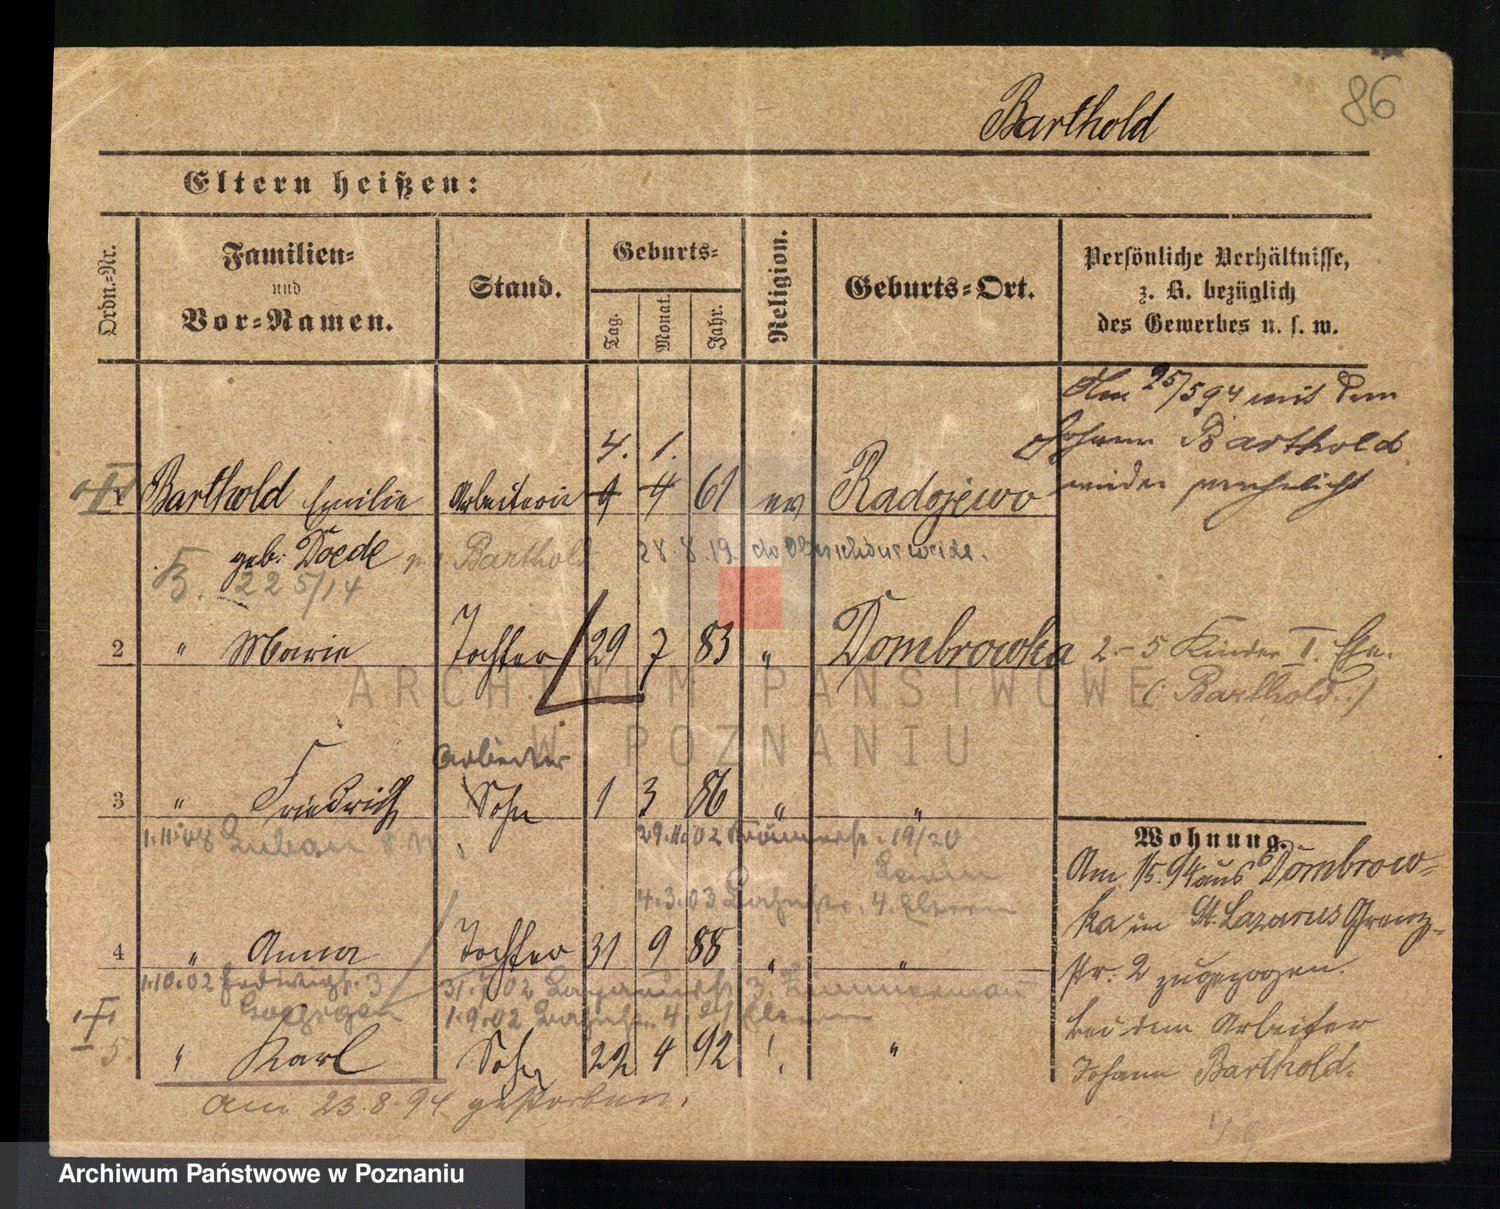 86
Barthold
Eltern heißen:
Ordn.-Nr.
Familien-
und
Vor-Namen.
Stand.
Geburts-
Tag.
Monat.
Jahr.
Religion.
Geburts-Ort.
Persönliche Verhältnisse,
z. B. bezüglich
des Gewerbes u. s. w.
Am 25/5 94 mit dem
Johann Barthold
wieder verehelicht
4. 1.
Barthold Emilie Arbeiterin 9 4 61 ev Radojewo
geb. Doede Barthold 28.8.19.
B. 225/14
2 " Marie Tochter 29 7 83 " Dombrowka
2-5 Kinder I. Ehe.
(Barthold.)
Arbeiter
3 " Friedrich Sohn 1 3 86 " "
1.11.08 29.11.02 19/20
4.3.03 4. Eltern
4 " Anna Tochter 31 9 88 " "
1.10.02 3 31.7.02 3.
1.9.02 4. Eltern
5 " Karl Sohn 22 4 92 " "
am 23.8.94 gestorben.
Wohnung.
Am 1/5 94 aus Dombrow-
ka in St. Lazarus Grenz-
str. 2 zugezogen.
bei dem Arbeiter
Johann Barthold.
ARCHIWUM PAŃSTWOWE
W POZNANIU
Archiwum Państwowe w Poznaniu